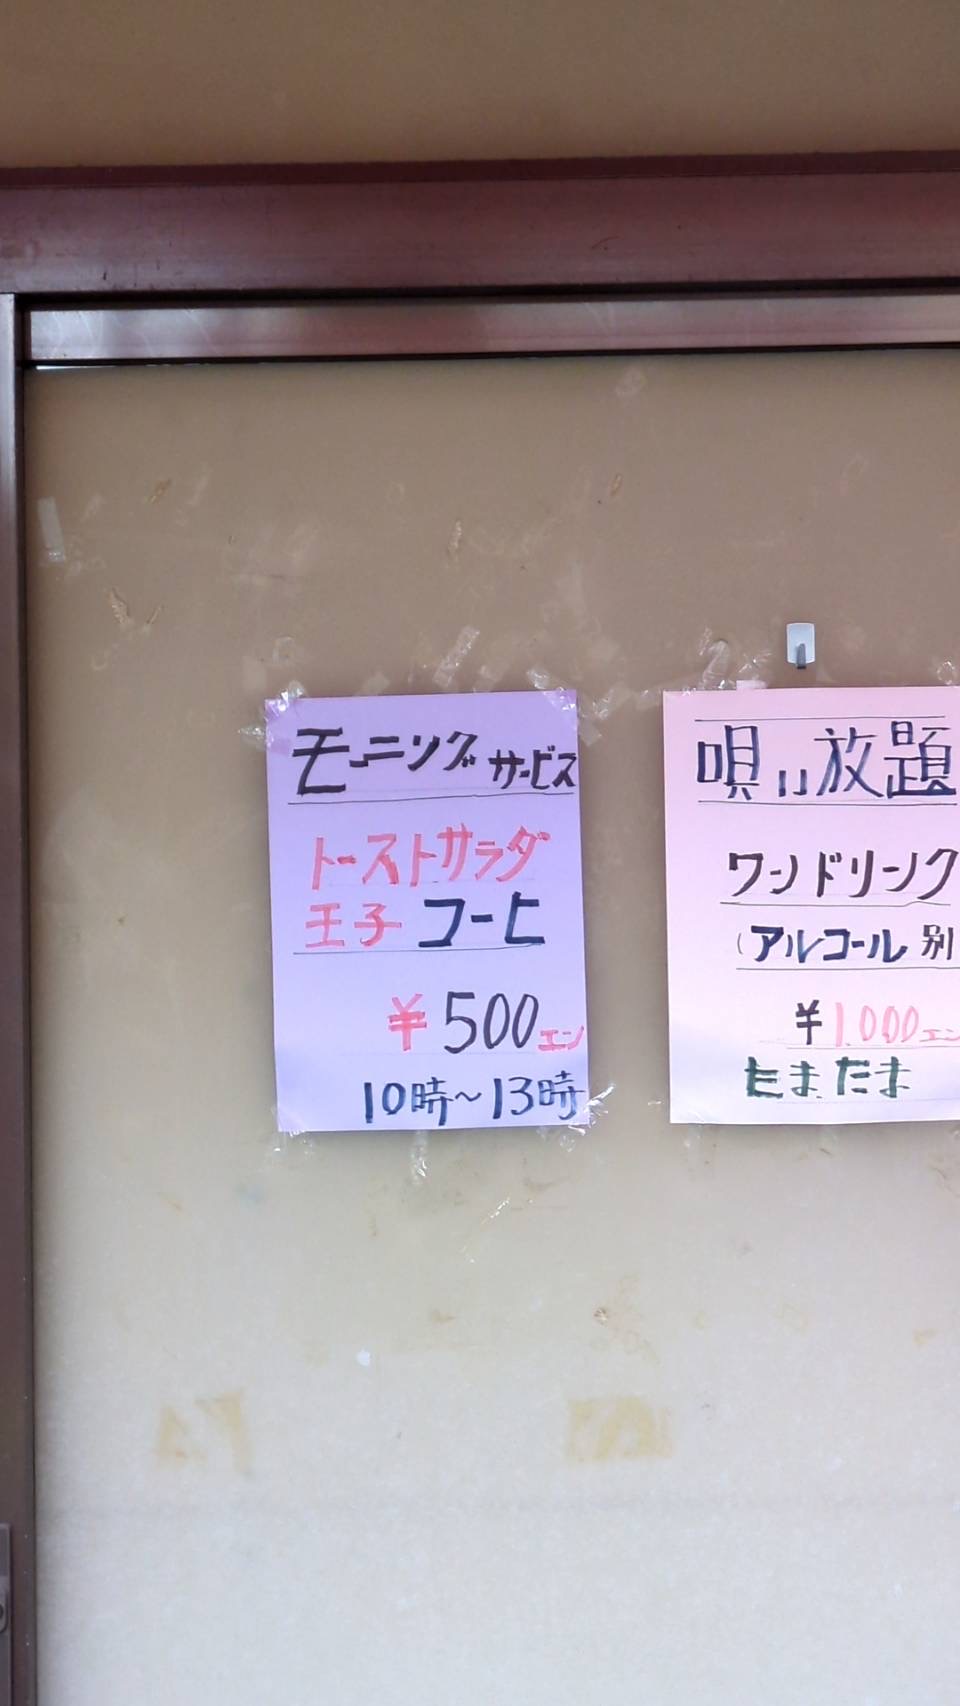 モーニングサービス
トーストサラダ
王子 コーヒ
¥500エン
10時～13時
唄い放題
ワンドリンク
(アルコール別
¥1.000エン
たまたま